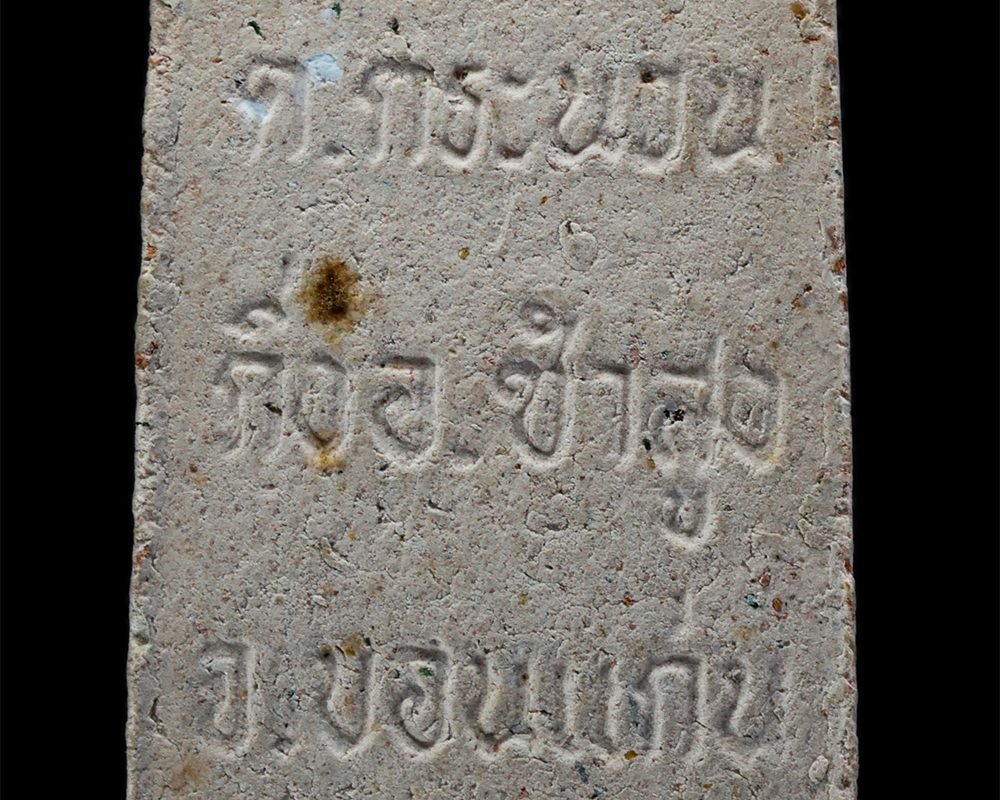 ต.กระนวน
กิ่งอ.ซำสูง
จ.ขอนแก่น